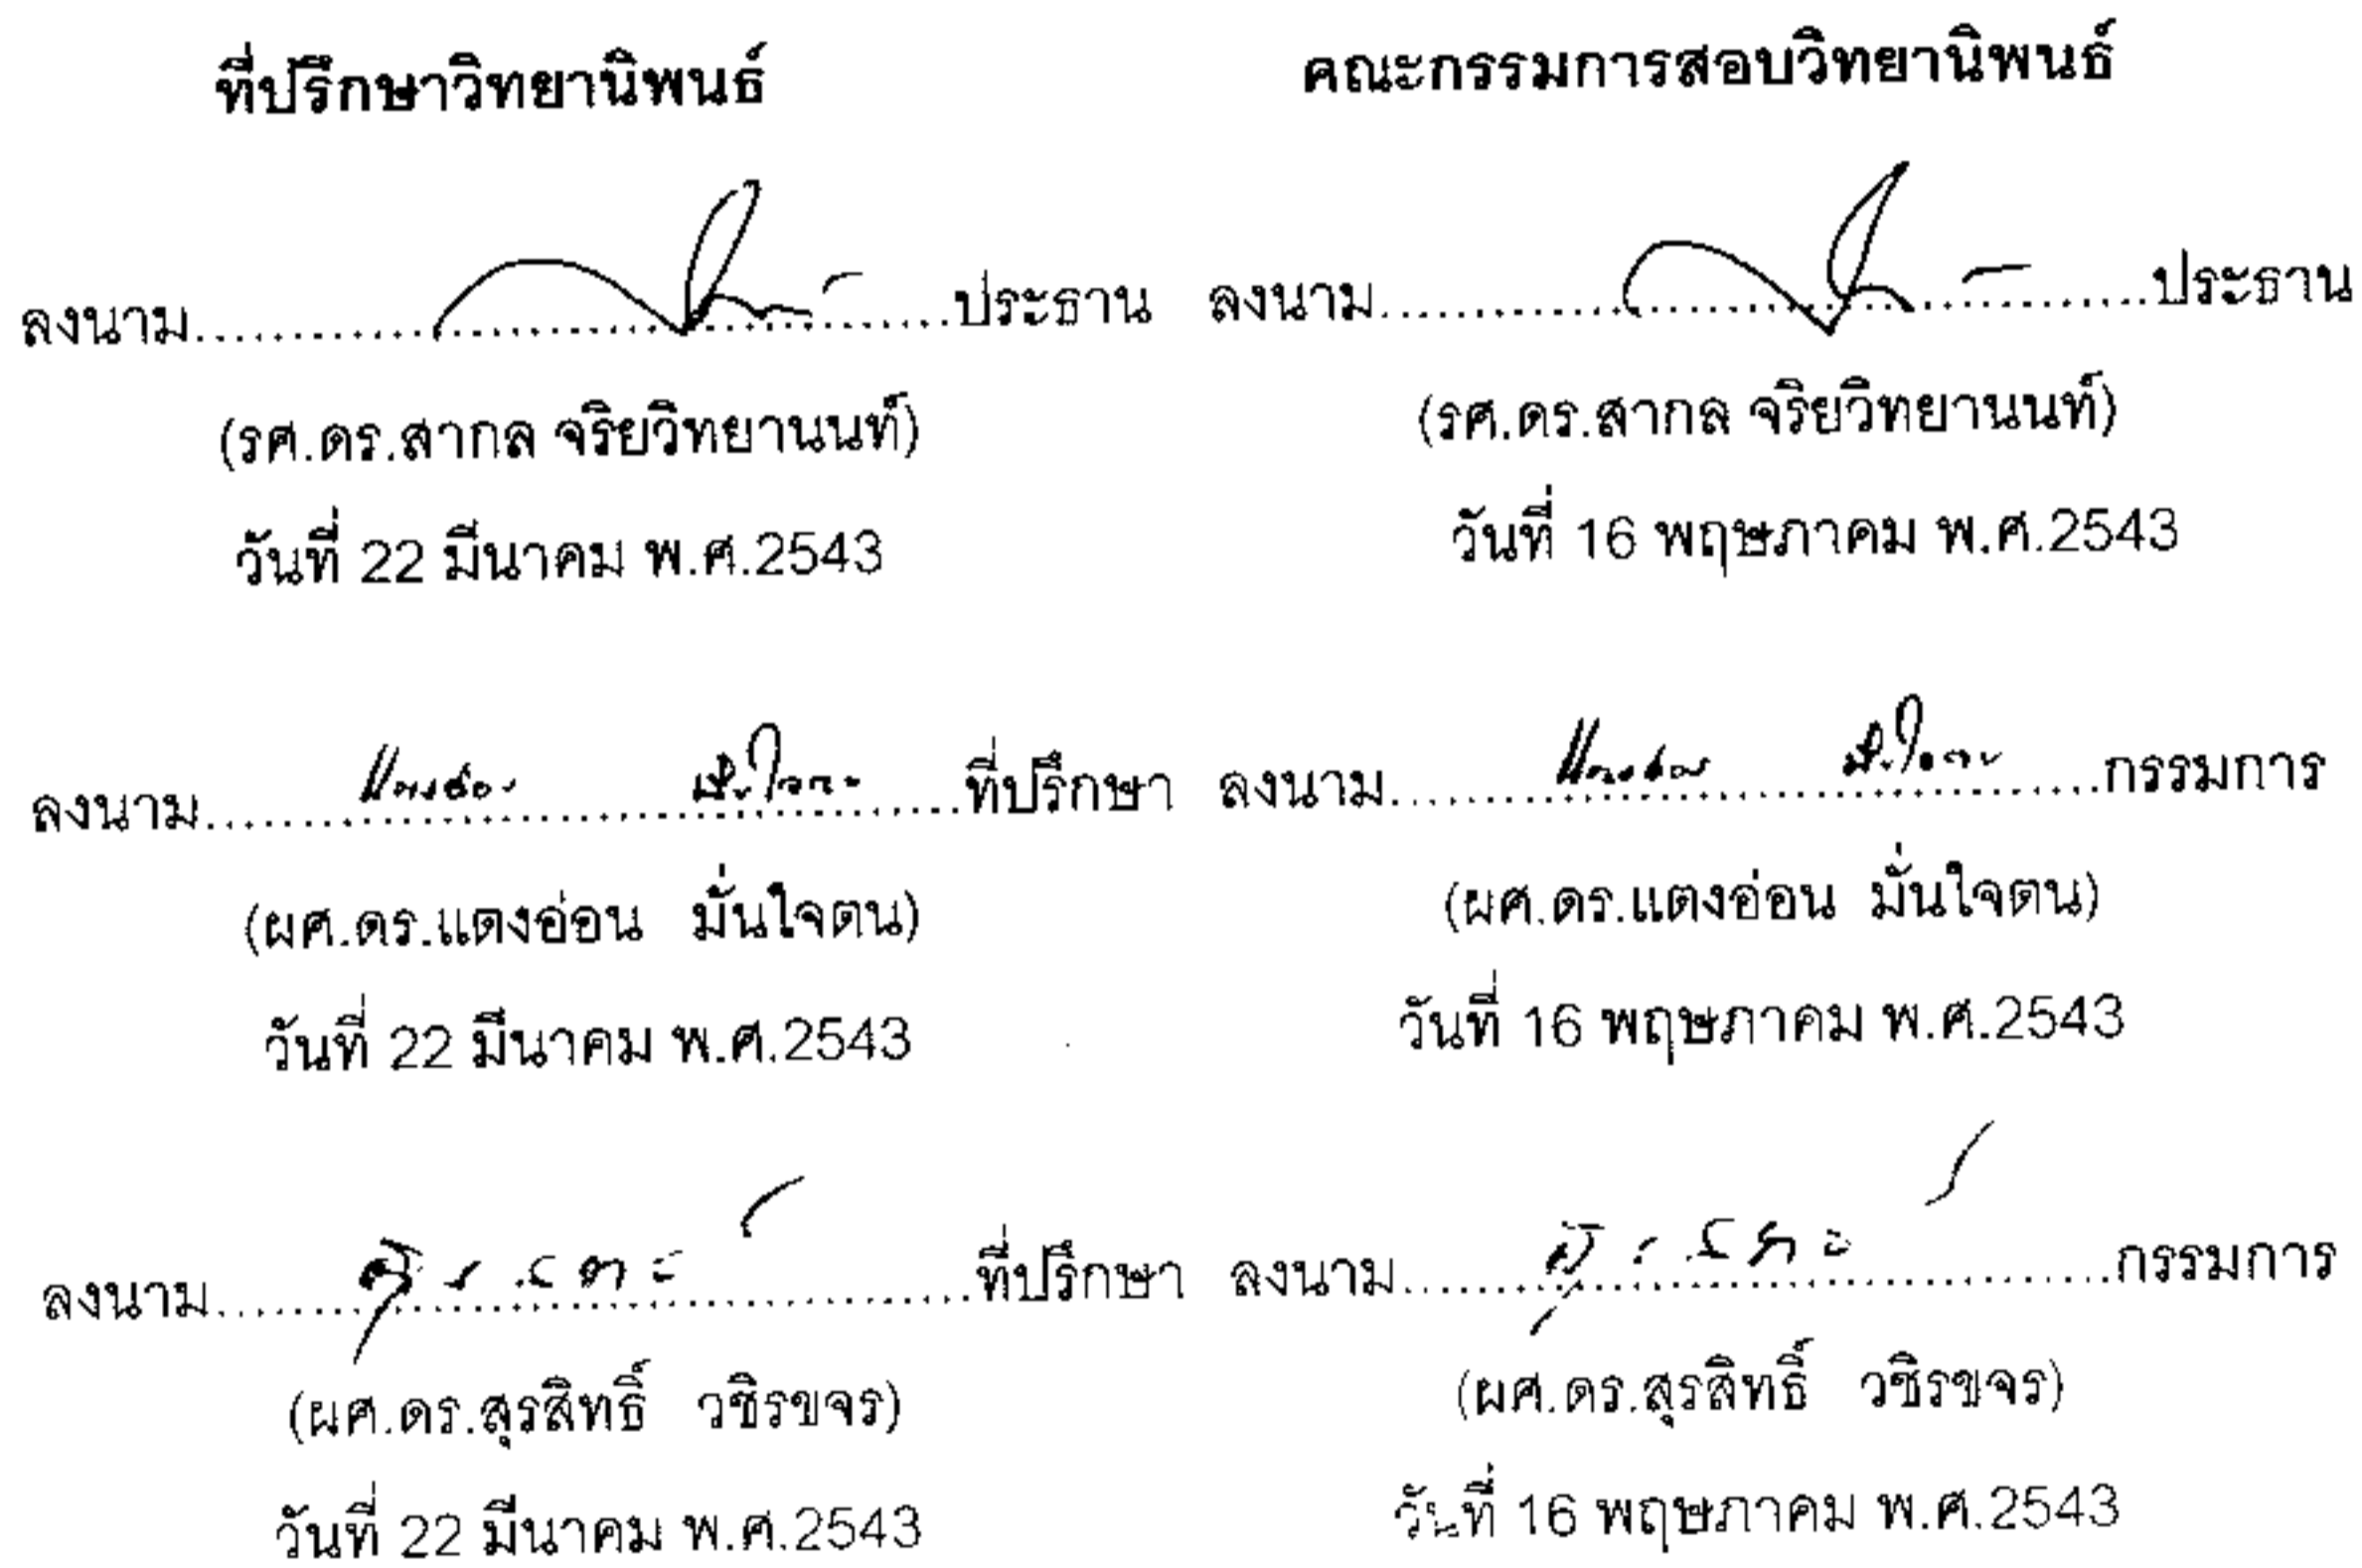 ที่ปรึกษาวิทยานิพนธ์
ลงนาม....................ประธาน
(รศ.ดร.สากล จริยวิทยานนท์)
วันที่ 22 มีนาคม พ.ศ.2543
ลงนาม....................ที่ปรึกษา
(ผศ.ดร.แตงอ่อน มั่นใจตน)
วันที่ 22 มีนาคม พ.ศ.2543
ลงนาม....................ที่ปรึกษา
(ผศ.ดร.สุรสิทธิ์ วชิรขจร)
วันที่ 22 มีนาคม พ.ศ.2543
คณะกรรมการสอบวิทยานิพนธ์
ลงนาม....................ประธาน
(รศ.ดร.สากล จริยวิทยานนท์)
วันที่ 16 พฤษภาคม พ.ศ.2543
ลงนาม....................กรรมการ
(ผศ.ดร.แตงอ่อน มั่นใจตน)
วันที่ 16 พฤษภาคม พ.ศ.2543
ลงนาม....................กรรมการ
(ผศ.ดร.สุรสิทธิ์ วชิรขจร)
วันที่ 16 พฤษภาคม พ.ศ.2543